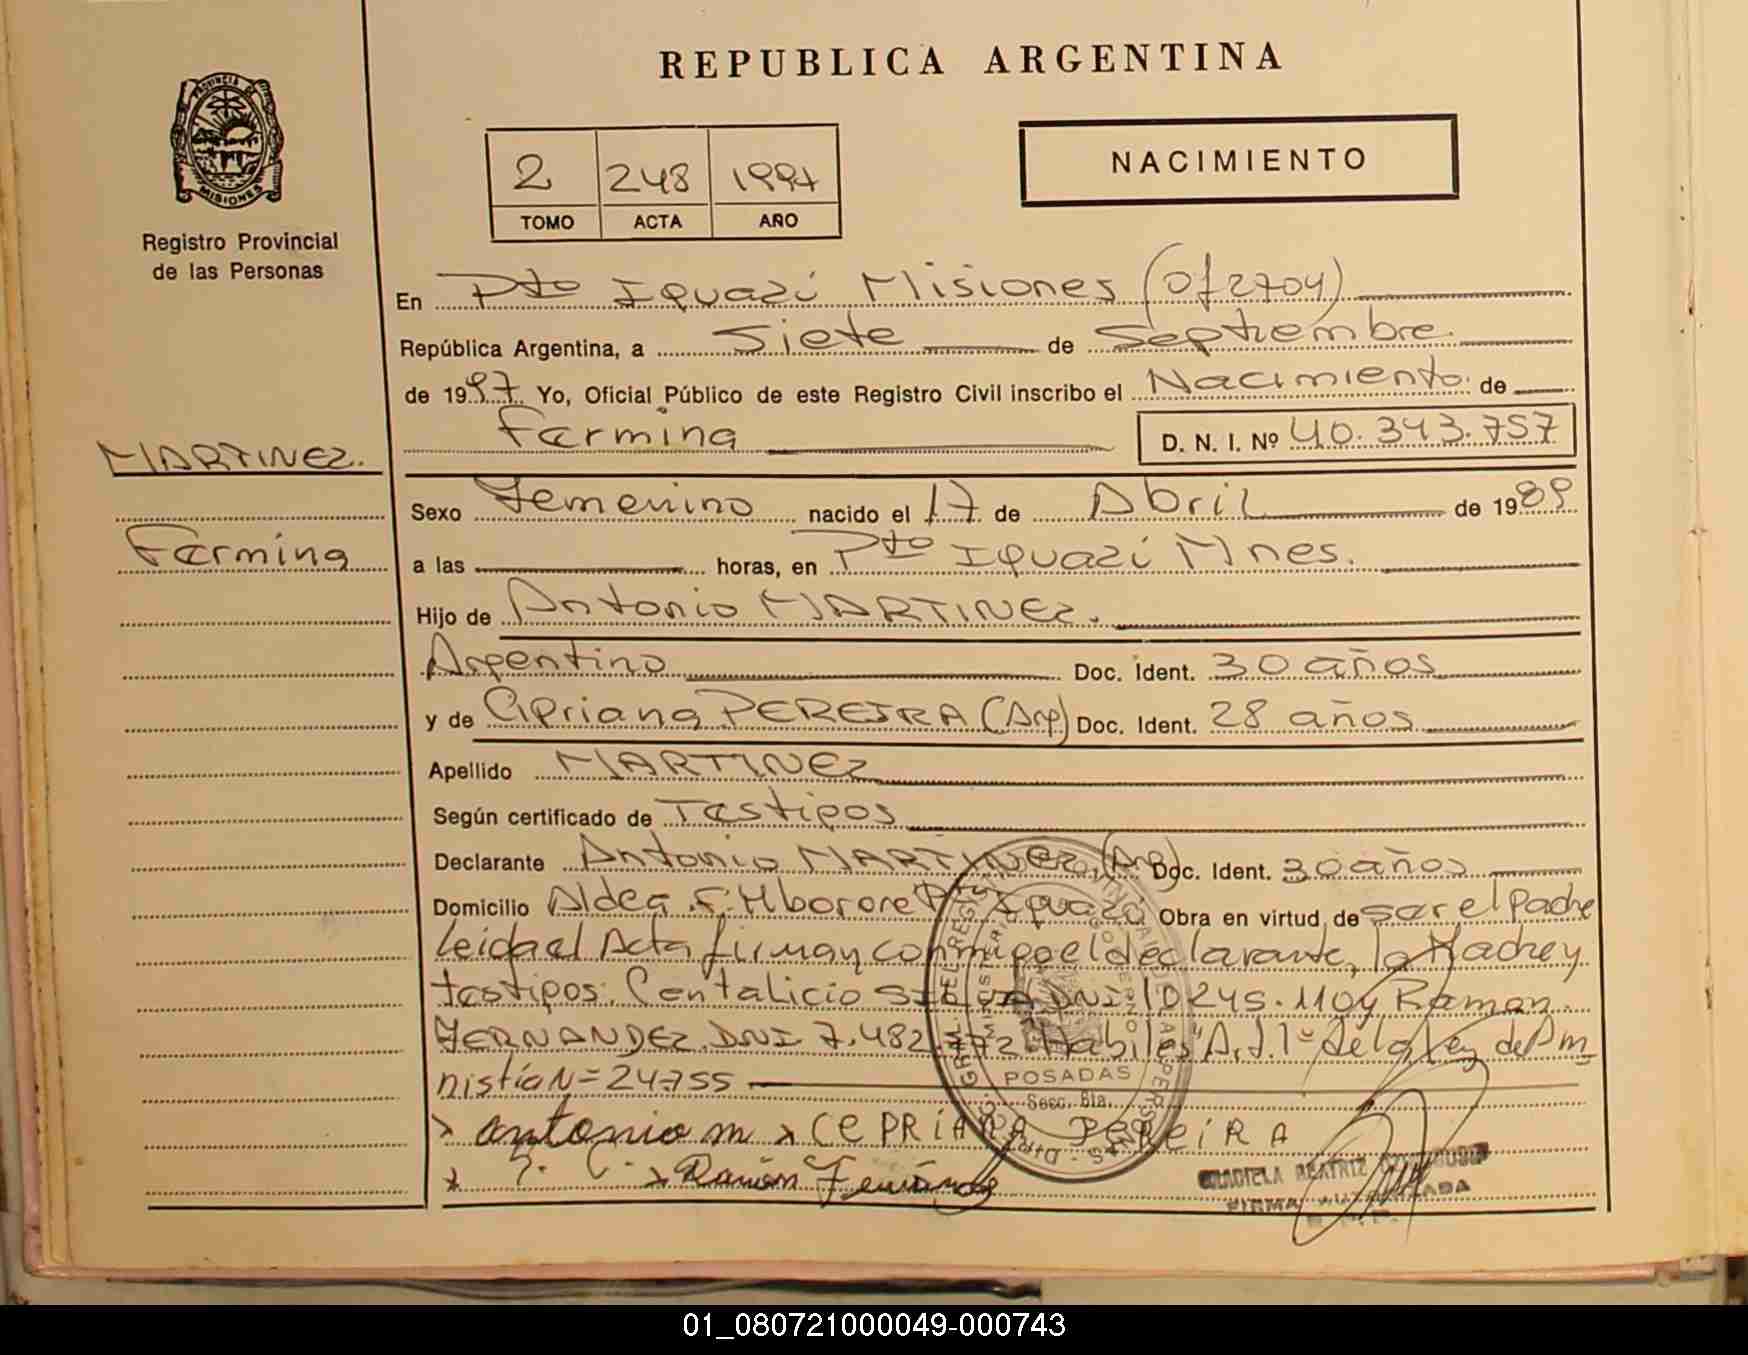 REPUBLICA ARGENTINA
PROVINCIA DE
MISIONES
Registro Provincial
de las Personas
2 248 1997
TOMO ACTA AÑO
NACIMIENTO
En Pto Iguazú Misiones (of 2704)
República Argentina, a Siete de Septiembre
de 1997 Yo, Oficial Público de este Registro Civil inscribo el Nacimiento de
Fermina D. N. I. Nº 40.343.757
MARTINEZ.
Fermina
Sexo Femenino nacido el 17 de Abril de 1989
a las horas, en Pto Iguazú Mnes.
Hijo de Antonio MARTINEZ.
Argentino Doc. Ident. 30 años
y de Cipriana PEREIRA (Arg) Doc. Ident. 28 años
Apellido MARTINEZ
Según certificado de Testigos
Declarante Antonio MARTINEZ, (Arg) Doc. Ident. 30 años
Domicilio Aldea F. Mborore Pto Iguazú Obra en virtud de ser el Padre
Leida el Acta firman conmigo el declarante, la Madre y
testigos. Centalicio DNI 10245.110 y Ramon
FERNANDEZ DNI 7.482.772 Habiles Art. 1º de la Ley de Am
nistia N= 24755
x antonio m x CEPRIANA PEREIRA
x x Ramón Fernández
POSADAS
Secc. Bla.
GRADIELA BEATRIZ
FIRMA AUTORIZADA
01_080721000049-000743